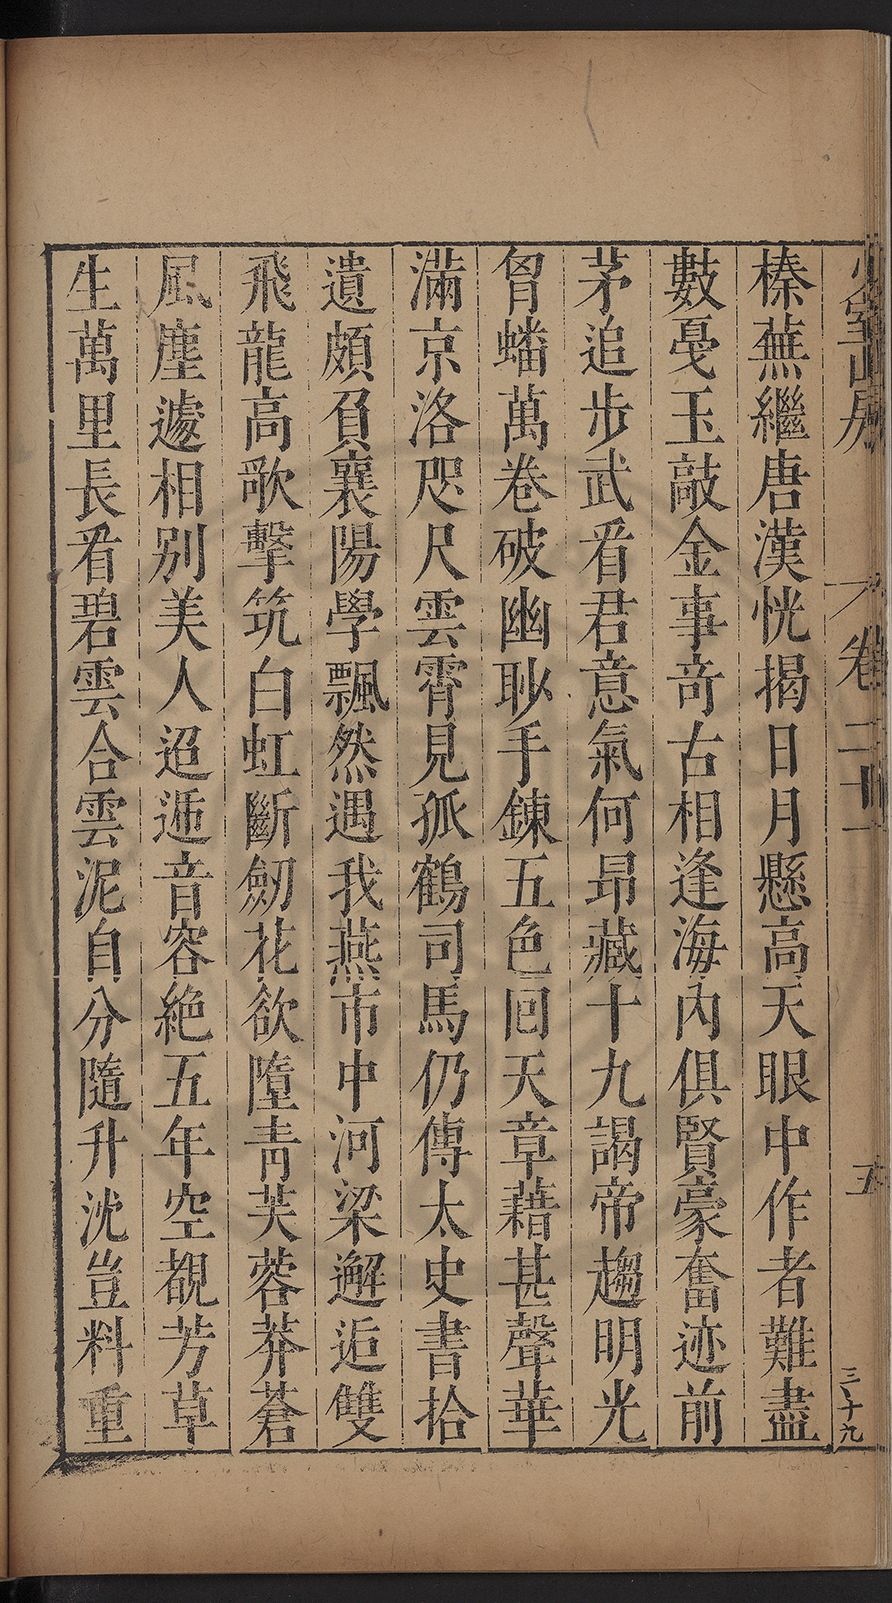 少室山房
卷二十一
五
三十九
榛蕪繼唐漢恍揭日月懸高天眼中作者難盡
數戞玉敲金事奇古相逢海內俱賢豪奮迹前
茅追步武㸔君意氣何昂藏十九謁帝趨明光
胷蟠萬卷破幽眇手鍊五色囘天章藉甚聲華
滿京洛咫尺雲霄見孤鶴司馬仍傳太史書拾
遺頗負襄陽學飄然遇我燕市中河梁邂逅雙
飛龍高歌擊筑白虹斷劒花欲墮青芙蓉莽蒼
風塵遽相別美人迢遞音容絶五年空覩芳草
生萬里長㸔碧雲合雲泥自分隨升沈豈料重